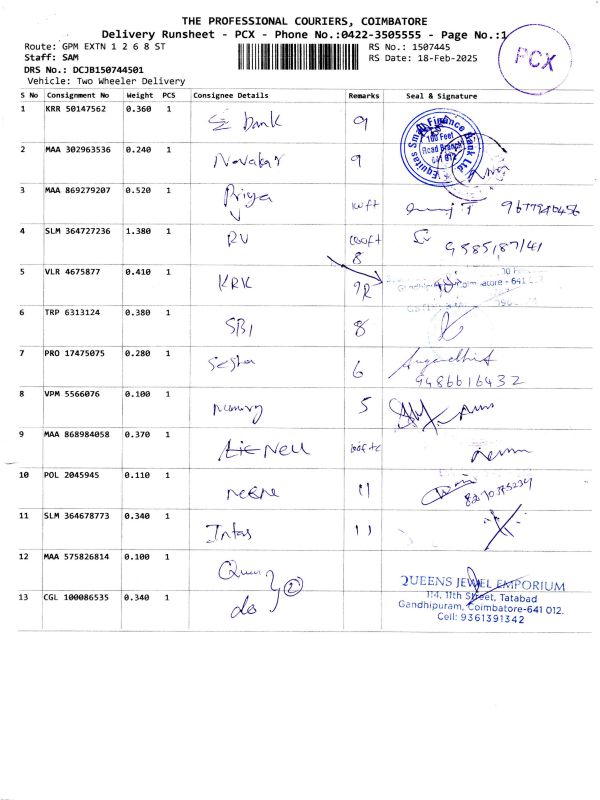 THE PROFESSIONAL COURIERS, COIMBATORE
Delivery Runsheet - PCX - Phone No.:0422-3505555 - Page No.:1
Route: GPM EXTN 1 2 6 8 ST
RS No.: 1507445
Staff: SAM
RS Date: 18-Feb-2025
DRS No.: DCJB150744501
Vehicle: Two Wheeler Delivery
PCX
S No Consignment No Weight PCS Consignee Details Remarks Seal & Signature
1 KRR 50147562 0.360 1 bank 9
Equitas Small Finance Bank Ltd
100 Feet
Road Branch
641 012
2 MAA 302963536 0.240 1 Navakar 9
3 MAA 869279207 0.520 1 Priya
4 SLM 364727236 1.380 1 RV 8
5 VLR 4675877 0.410 1 KRK 9R
6 TRP 6313124 0.380 1 SBI 8
7 PRO 17475075 0.280 1 6 Sugandhi
9486616432
8 VPM 5566076 0.100 1 5
9 MAA 868984058 0.370 1
10 POL 2045945 0.110 1 11
11 SLM 364678773 0.340 1 Intas 11
12 MAA 575826814 0.100 1
13 CGL 100086535 0.340 1 do 2
QUEENS JEWEL EMPORIUM
114, 11th Street, Tatabad
Gandhipuram, Coimbatore-641 012.
Cell: 9361391342